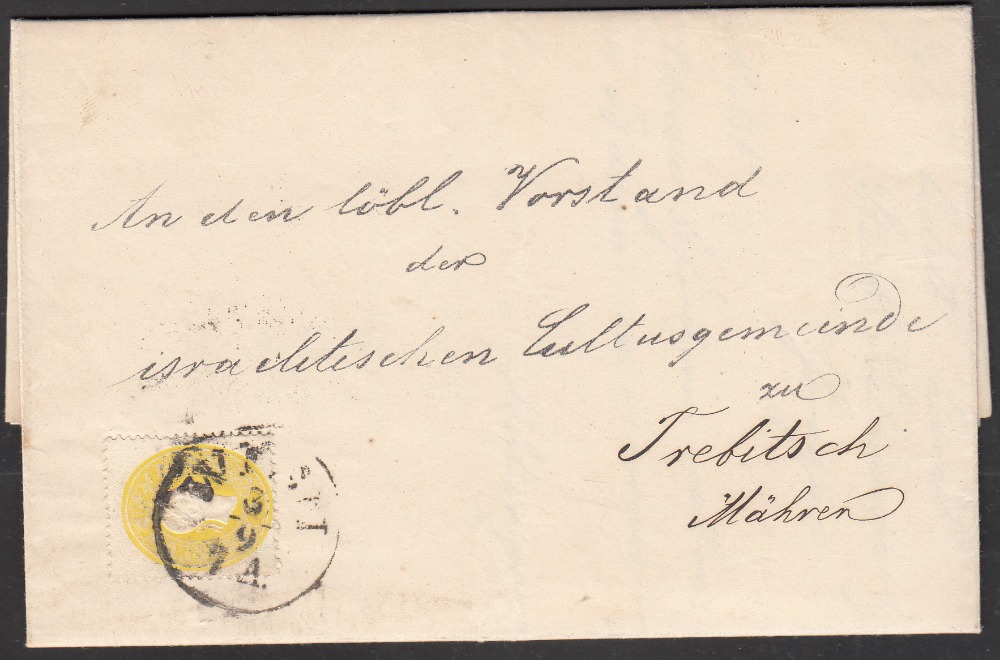 An den löbl. Vorstand
der
israelitischen Cultusgemeinde
zu
Trebitsch
Mähren
WIEN